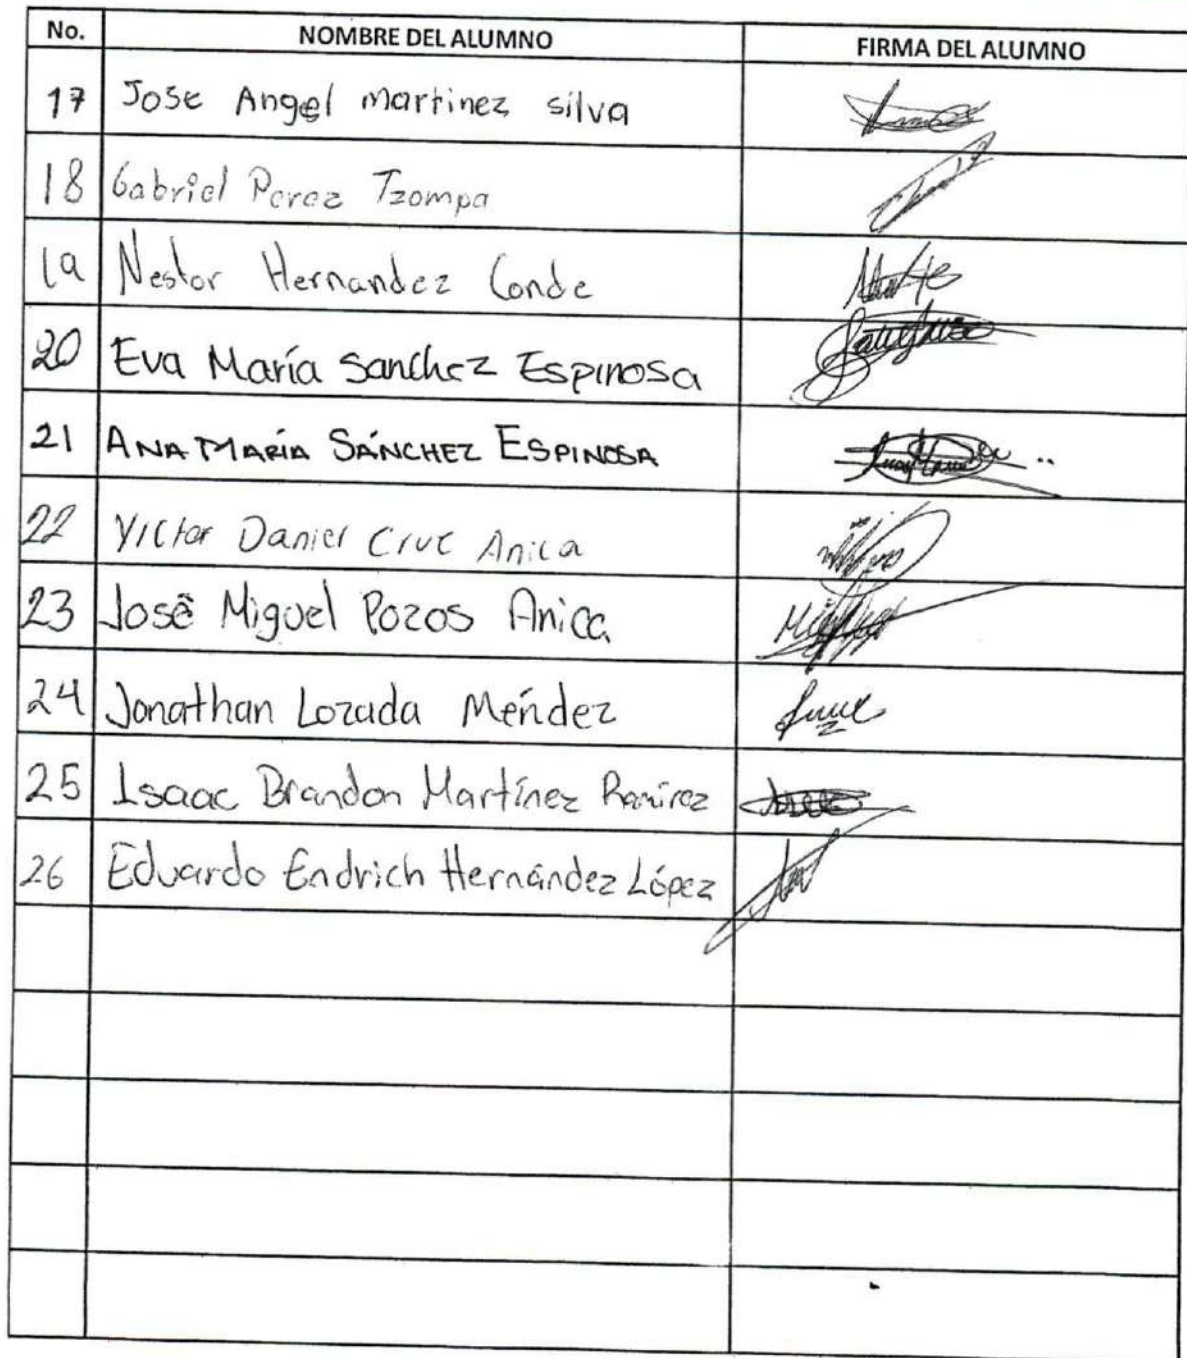 No. NOMBRE DEL ALUMNO FIRMA DEL ALUMNO
17 Jose Angel martinez silva
18 Gabriel Perez Tzompa
19 Nestor Hernandez Conde
20 Eva María Sanchez Espinosa
21 ANA MARÍA SÁNCHEZ ESPINOSA
22 Victor Daniel Cruz Anica
23 José Miguel Pozos Anica
24 Jonathan Lozada Méndez
25 Isaac Brandon Martínez Ramírez
26 Eduardo Endrich Hernández López